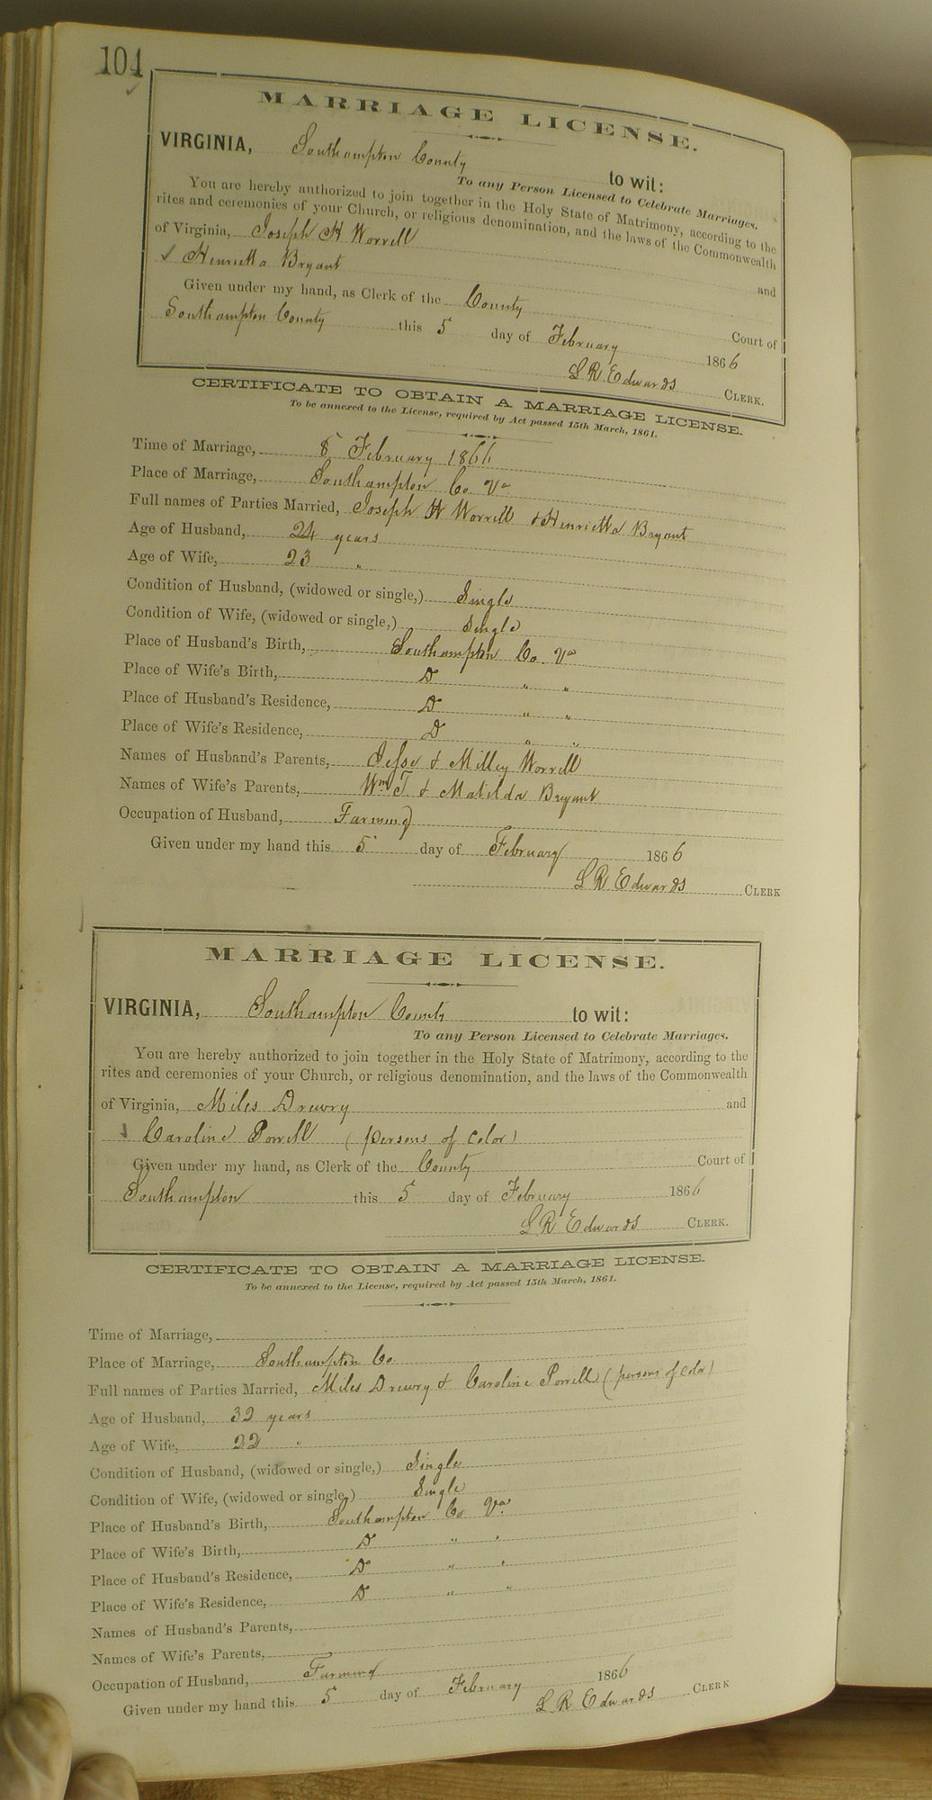 104
MARRIAGE LICENSE.
VIRGINIA, Southampton County to wit:
To any Person Licensed to Celebrate Marriages.
You are hereby authorized to join together in the Holy State of Matrimony, according to the
rites and ceremonies of your Church, or religious denomination, and the laws of the Commonwealth
of Virginia, Joseph H Worrell and
✓ Henrietta Bryant
Given under my hand, as Clerk of the County Court of
Southampton County this 5 day of February 1866
L R Edwards CLERK.
CERTIFICATE TO OBTAIN A MARRIAGE LICENSE.
To be annexed to the License, required by Act passed 15th March, 1861.
Time of Marriage, 8 February 1866
Place of Marriage, Southampton Co Va
Full names of Parties Married, Joseph H Worrell & Henrietta Bryant
Age of Husband, 24 years
Age of Wife, 23 "
Condition of Husband, (widowed or single,) Single
Condition of Wife, (widowed or single,) Single
Place of Husband's Birth, Southampton Co. Va
Place of Wife's Birth, D " "
Place of Husband's Residence, D " "
Place of Wife's Residence, D " "
Names of Husband's Parents, Jesse & Milley Worrell
Names of Wife's Parents, Wm T & Matilda Bryant
Occupation of Husband, Farming
Given under my hand this 5 day of February 1866
L R Edwards CLERK
MARRIAGE LICENSE.
VIRGINIA, Southampton County to wit:
To any Person Licensed to Celebrate Marriages.
You are hereby authorized to join together in the Holy State of Matrimony, according to the
rites and ceremonies of your Church, or religious denomination, and the laws of the Commonwealth
of Virginia, Miles Drewry and
Caroline Porrell (persons of color)
Given under my hand, as Clerk of the County Court of
Southampton this 5 day of February 1866
L R Edwards CLERK.
CERTIFICATE TO OBTAIN A MARRIAGE LICENSE.
To be annexed to the License, required by Act passed 15th March, 1861.
Time of Marriage,
Place of Marriage, Southampton Co
Full names of Parties Married, Miles Drewry & Caroline Porrell (persons of color)
Age of Husband, 32 years
Age of Wife, 22 "
Condition of Husband, (widowed or single,) Single
Condition of Wife, (widowed or single,) Single
Place of Husband's Birth, Southampton Co Va
Place of Wife's Birth, D " "
Place of Husband's Residence, D " "
Place of Wife's Residence, D " "
Names of Husband's Parents,
Names of Wife's Parents,
Occupation of Husband, Farming
Given under my hand this 5 day of February 1866
L R Edwards CLERK